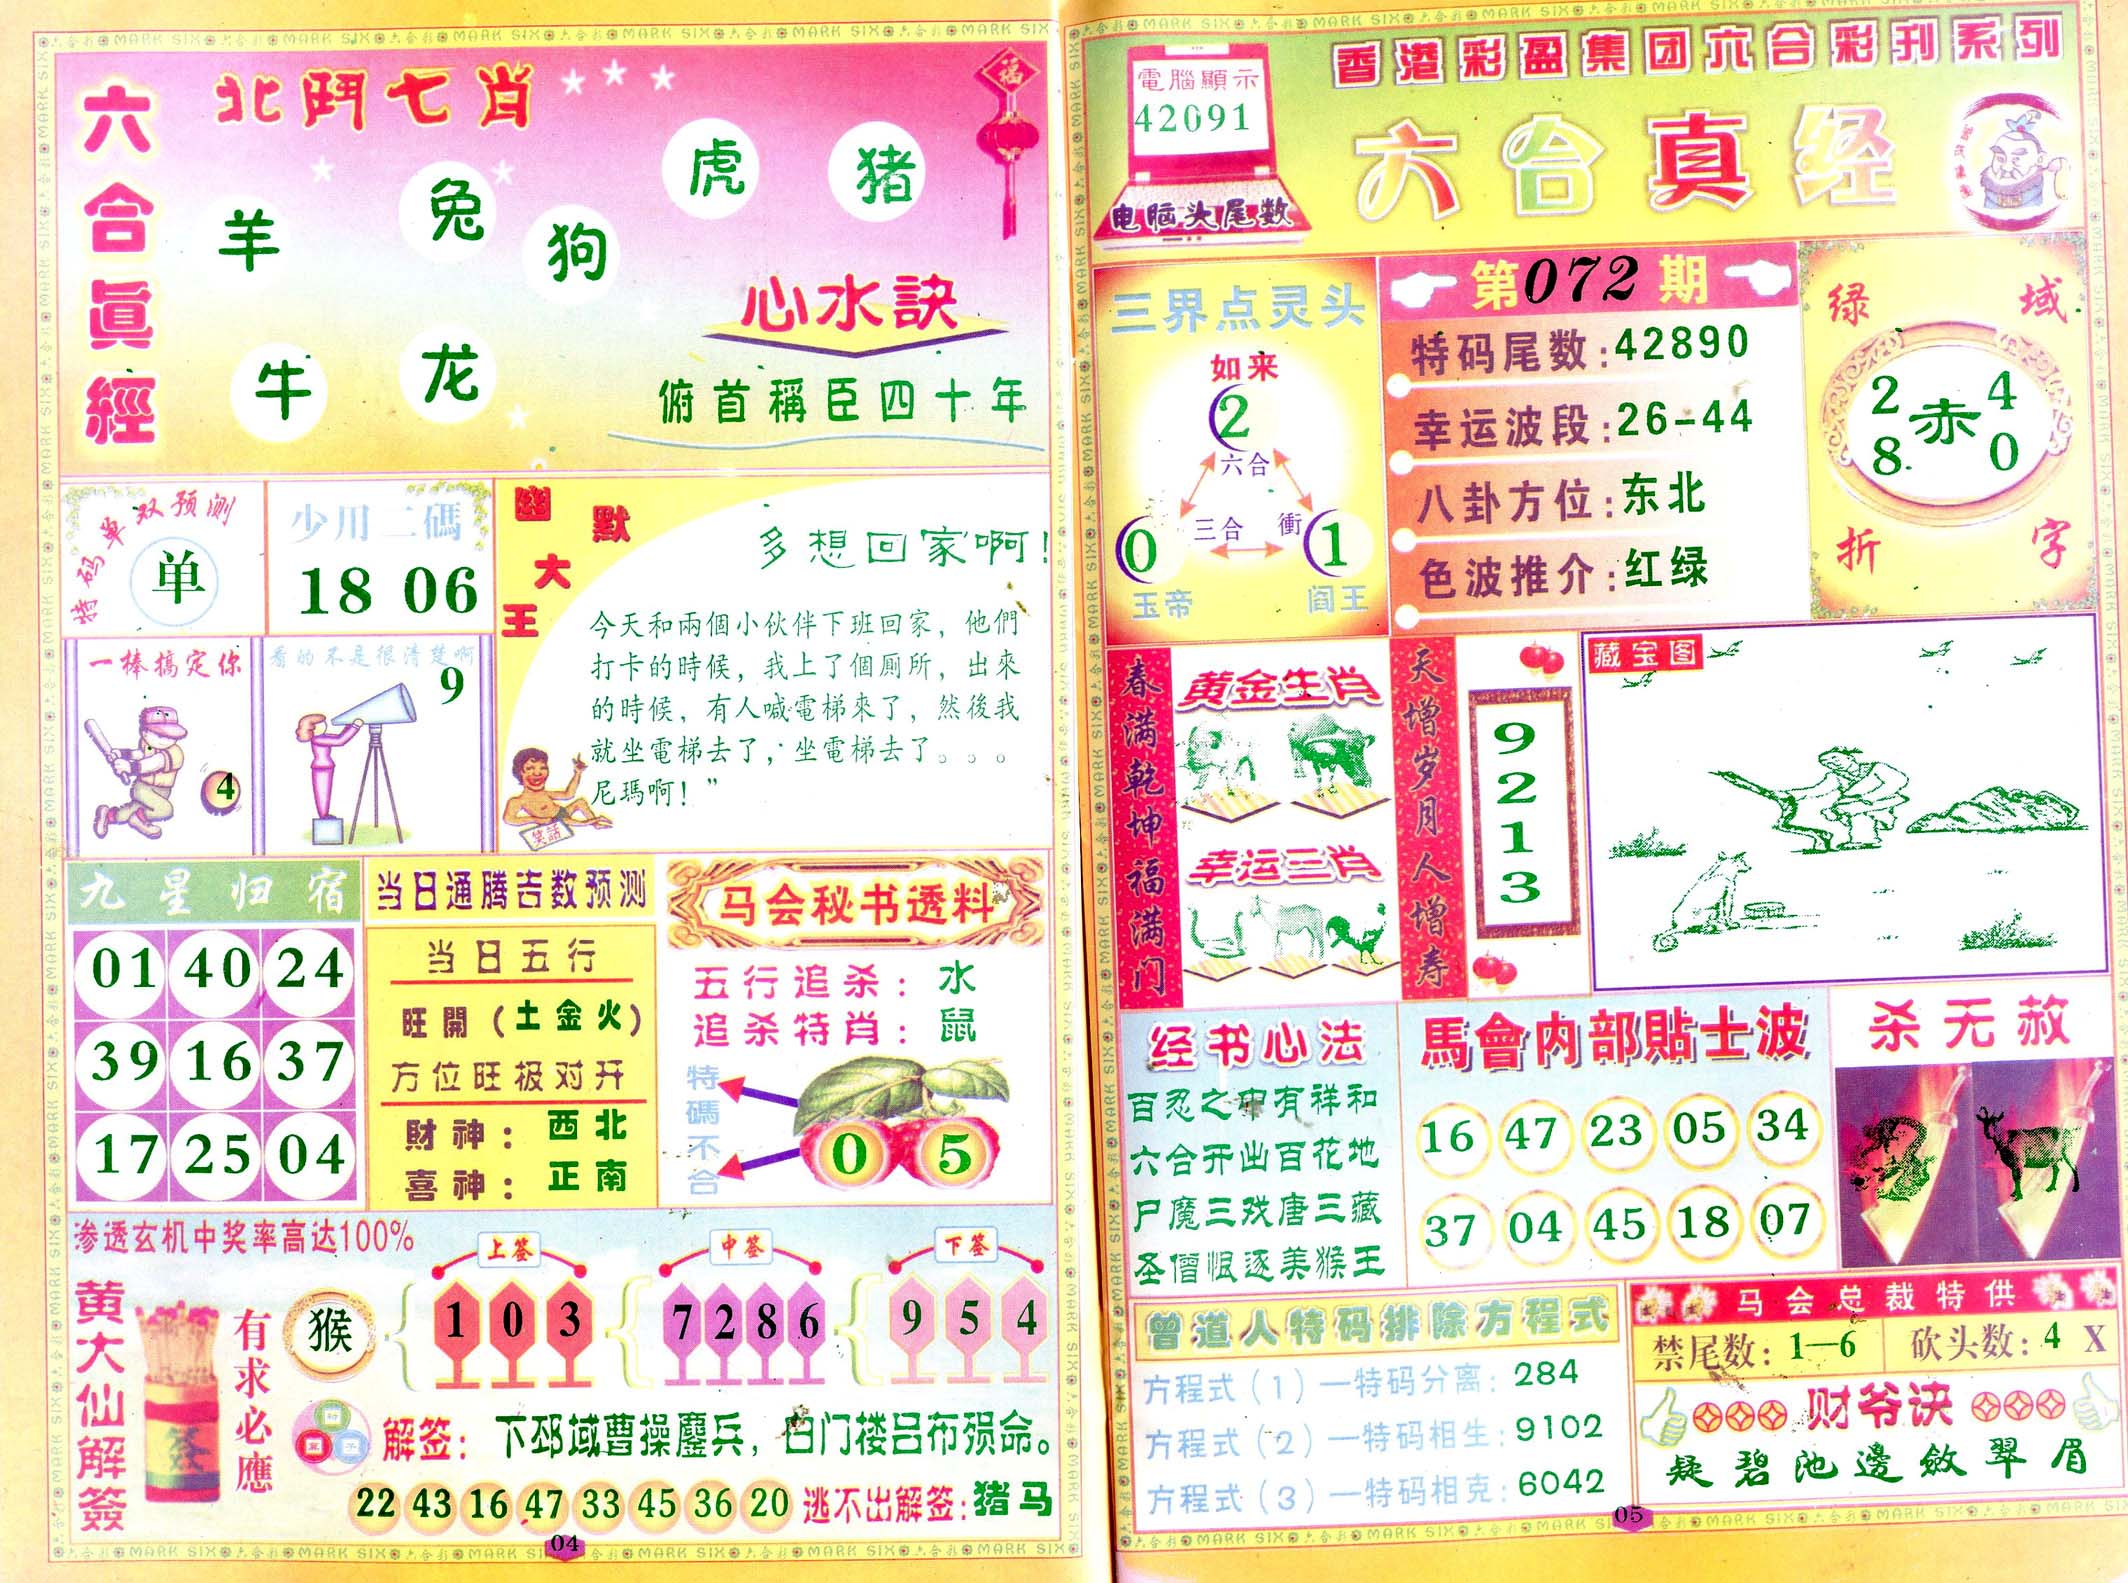 六合真經
北鬥七肖
羊
兔
狗
虎
猪
牛
龙
福
心水訣
俯首稱臣四十年
特码单双预测
单
少用二碼
18 06
一棒搞定你
4
看的不是很清楚啊
9
幽默大王
多想回家啊!
今天和兩個小伙伴下班回家，他們
打卡的時候，我上了個厠所，出來
的時候，有人喊電梯來了，然後我
就坐電梯去了，坐電梯去了。。。
尼瑪啊！”
笑話
九星归宿
01 40 24
39 16 37
17 25 04
当日通腾吉数预测
当日五行
旺開（土金火）
方位旺极对开
財神：西北
喜神：正南
马会秘书透料
五行追杀：水
追杀特肖：鼠
特碼不合
0 5
渗透玄机中奖率高达100%
黄大仙解签
有求必應
猴
上签
1 0 3
中签
7 2 8 6
下签
9 5 4
解签：下邳域曹操鏖兵，白门楼吕布殒命。
22 43 16 47 33 45 36 20 逃不出解签:猪马
04
電腦顯示
42091
电脑头尾数
香港彩盈集团六合彩刊系列
六合真经
三界点灵头
如来
2
六合
三合
衝
0
1
玉帝
阎王
第072期
特码尾数:42890
幸运波段:26-44
八卦方位:东北
色波推介:红绿
绿域
2 4
赤
8 0
折字
春满乾坤福满门
黄金生肖
幸运三肖
天增岁月人增寿
9
2
1
3
藏宝图
经书心法
百忍之中有祥和
六合开出百花地
尸魔三戏唐三藏
圣僧恨逐美猴王
馬會内部貼士波
16 47 23 05 34
37 04 45 18 07
杀无赦
曾道人特码排除方程式
方程式（1）—特码分离：284
方程式（2）—特码相生：9102
方程式（3）—特码相克：6042
马会总裁特供
禁尾数：1—6
砍头数：4 X
财爷诀
疑碧池邊斂翠眉
05